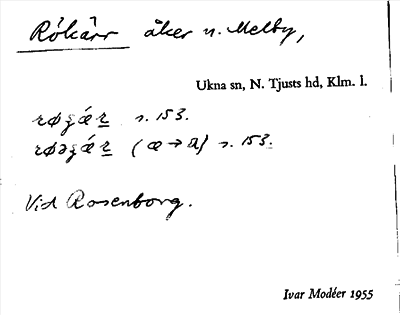 Rökärr åker n. Melby,
Ukna sn, N. Tjusts hd, Klm. l.
s. 153.
(æ→a) s. 153.
Vid Rosenborg.
Ivar Modéer 1955